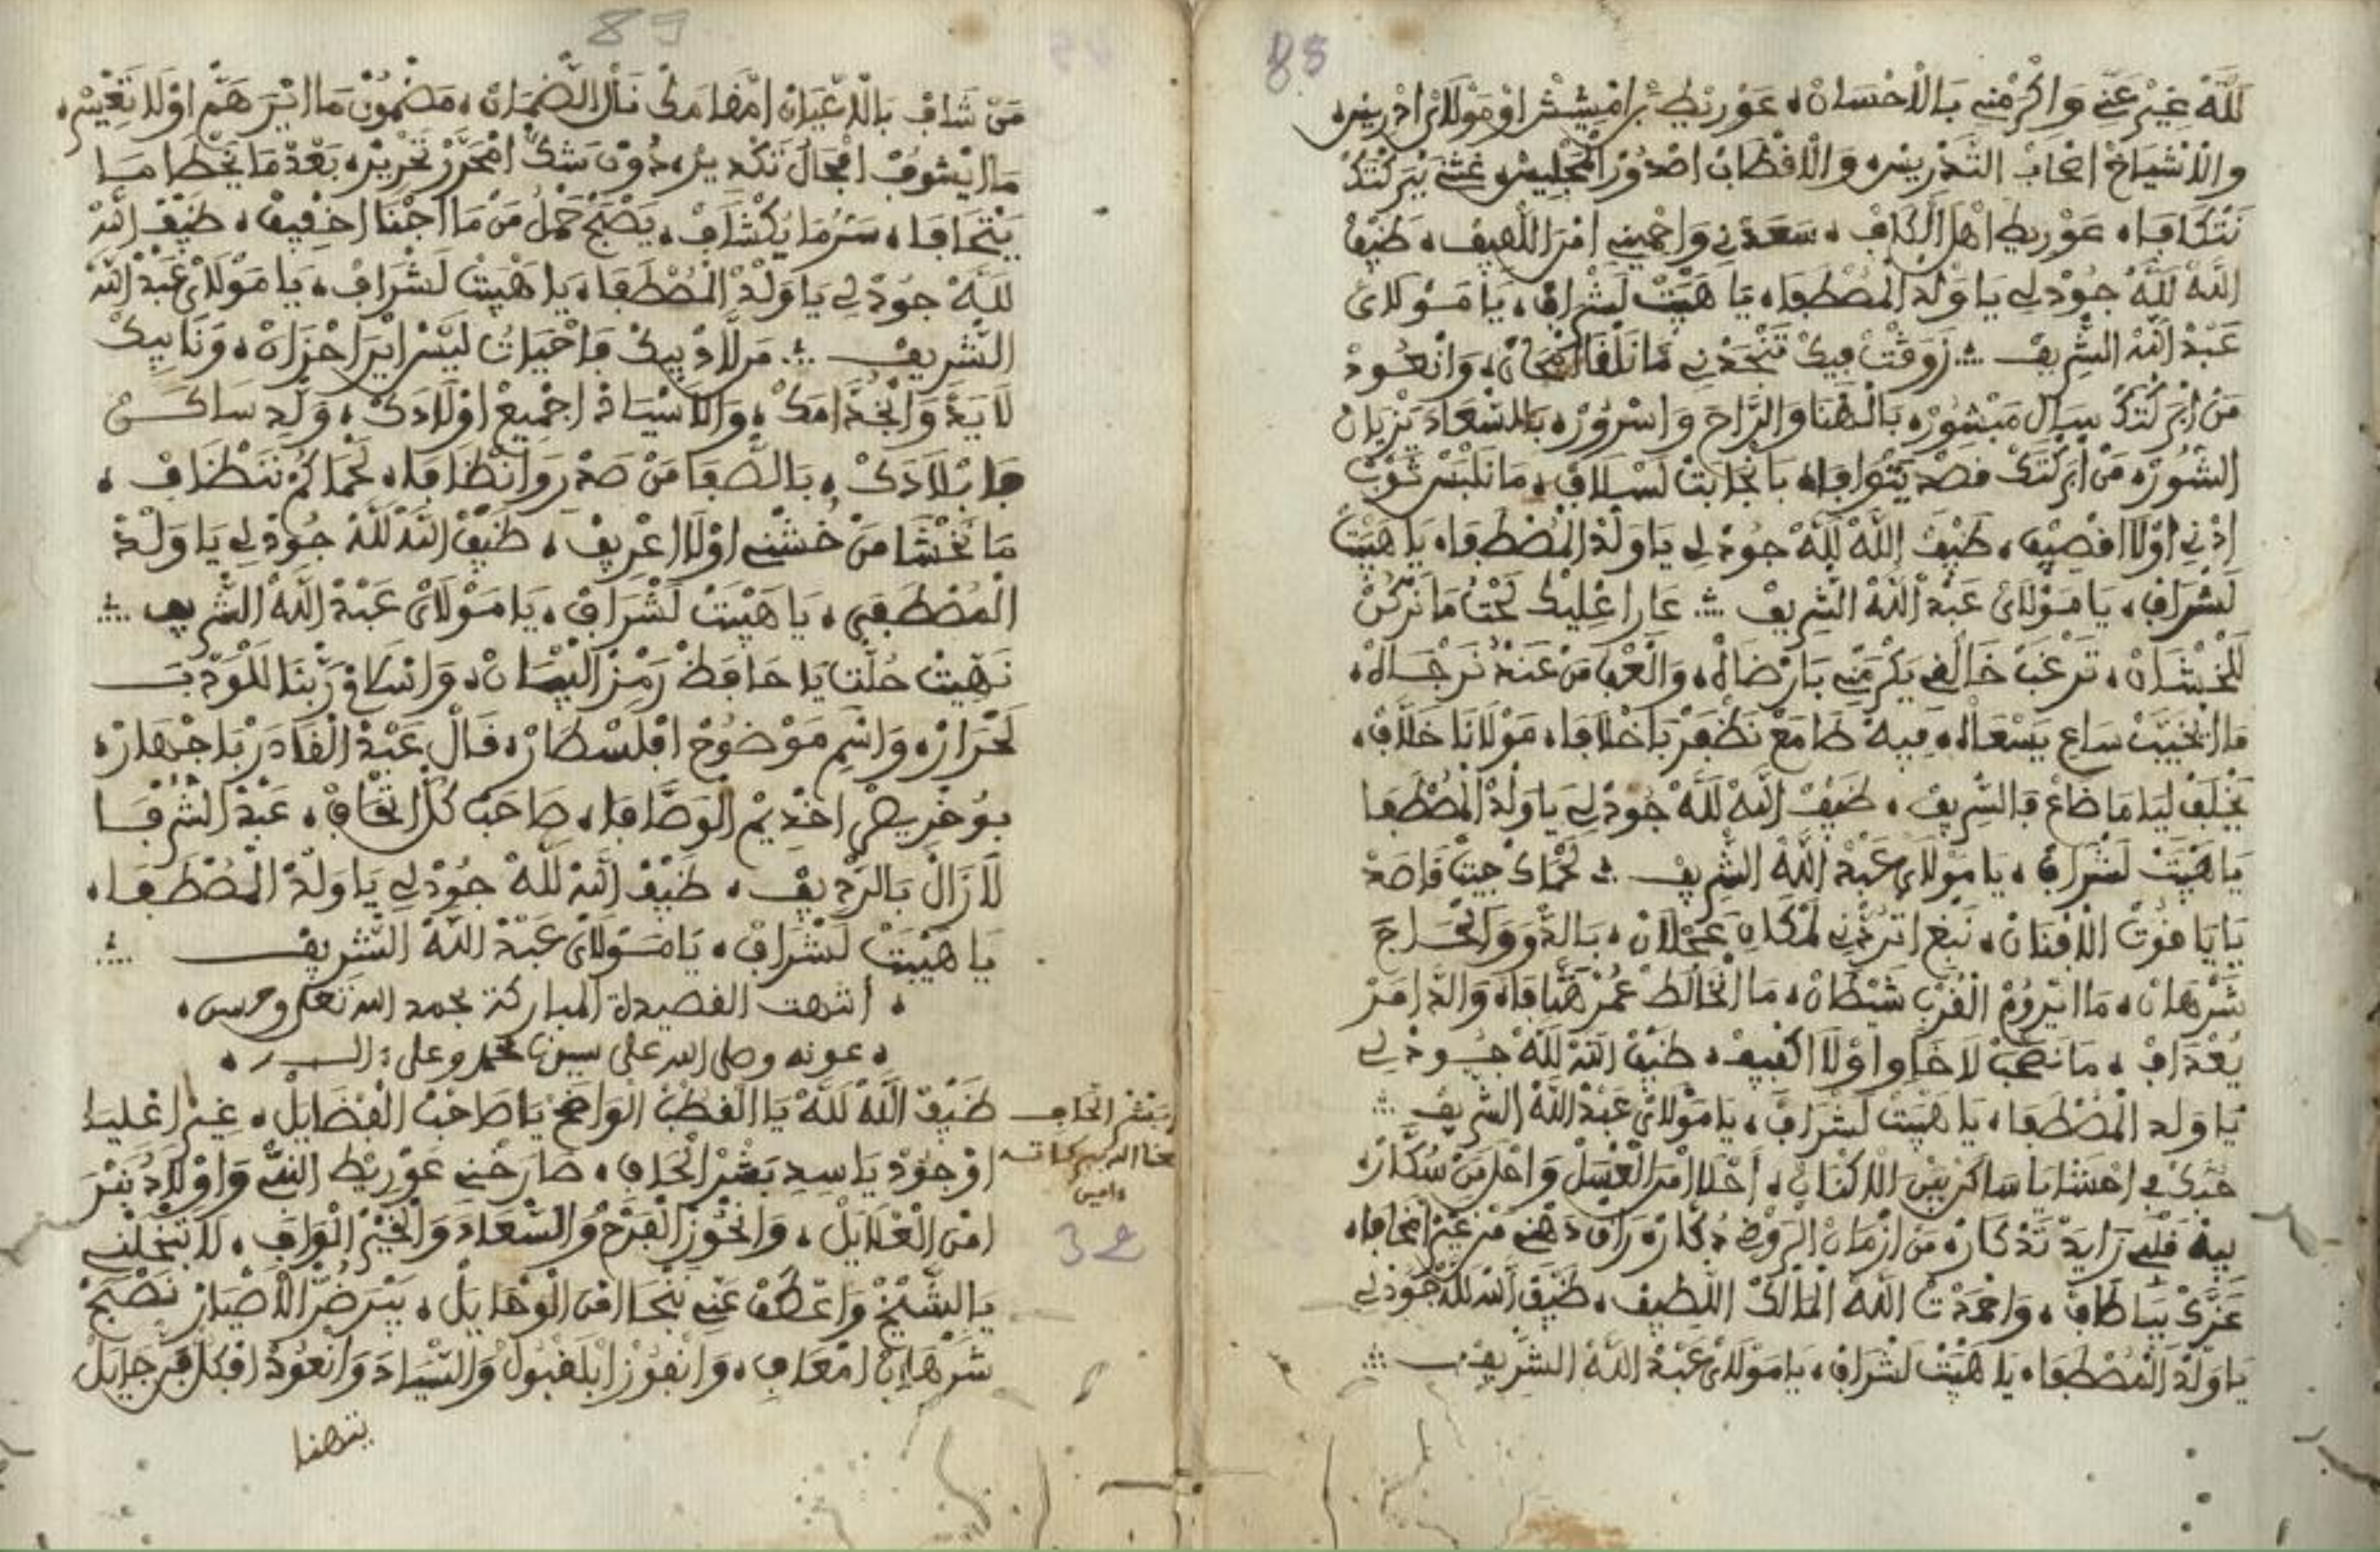 88
للَّهْ غِيرْ عَنِّي وَاكْرَمْنِي بَالْاحْسَانْ، عَوْرِيطْ بَرَامْشِيشْ اوْمُوْلَايْ ادْرِيسْ،
والْاشْيَاخْ اصْحَابْ التَّدْرِيسْ، وَالْاقْطَابْ اصْدُورْ الْمَجْلِيسْ، غِثْنِي بَبَرْكْتَكْ
نَتْكَافَا، عَوْرِيطْ اهْلْ الْكَافْ، سَعَدْنِي وَاحْمِينِي امْرَ اللَّهِيفْ، ضَيْفْ
اللَّهْ للَّهْ جُوْدْ لِي يَا وَلْدْ الْمُصْطَفَا، يَا هَيْبَتْ لَشْرَافْ، يَا مَوْلَايْ
عَبْدْ اللهْ الشْرِيفْ ∴ وَقْتْ فِيكْ تَنْجَدْنِي مَا نَلْقَا امْحَانْ، وَانْعُودْ
مَنْ ابْرَكْتَكْ سِيَالْ مَبْشُورْ، بَالْهْنَا وَالرَّاحَ وَاسْرُورْ، بَالسْعَادَ يَزْيَانْ
السُّورْ، مَنْ ابْرَكْتَكْ قَصْدْ يَتْوَافَا، يَا نْجَابَتْ لَسْلَافْ، مَا نَلْبَسْ ثَوْبْ
ادْنِي اوْلَا اقْصِيفْ، ضَيْفْ اللَّهْ للَّهْ جُوْدْ لِي يَا وَلْدْ الْمُصْطَفَا، يَا هَيْبَتْ
لَشْرَافْ، يَا مَوْلَايْ عَبْدْ اللهْ الشْرِيفْ ∴ عَارَ اعْلِيكْ لَحْتُ مَا نَرْكَنْ
للْخَشَانْ، نَرْغَبْ خَالْقِي يَكْرَمْنِي بَارْضَاهْ، وَالْعْفَا مَنْ عَنْدُ نَرْجَاهْ،
مَا انْخَيَّبْ سَاعِ يَسْعَاهْ، فِيهْ طَامَعْ نَظْفَرْ بَاخْلَافَا، مَوْلَانَا خَلَّافْ،
يَخْلَفْ لِيَا مَا ضَاعْ فَالشْرِيفْ، ضَيْفْ اللهْ للَّهْ جُوْدْ لِي يَا وَلْدْ الْمُصْطَفَا
يَا هَيْبَتْ لَشْرَافْ، يَا مَوْلَايْ عَبْدْ اللَّهْ الشْرِيفْ ∴ لَحْمَاكْ جِيتْ قَاصَدْ
يَايَا غَوْتْ الْافْنَانْ، نَبْغِ اتْرَدْنِي لَمْكَانِ عَجْلَانْ، بَالدْوَ وَالْخْرَاجْ
شَرْهَانْ، مَا ايْرُومْ الْقُرْبْ شَيْطَانْ، مَا انْخَالَطْ عُمْرْ هَتَّافَا، وَالدَّامَرْ
يُعْدَافْ، مَا نَصْحَبْ لَا خَاوْ اوْلَا اكْفِيفْ، ضَيْفْ اللهْ للَّهْ جُوْدْ لِي
يَا وَلد الْمُصْطَفَا، يَا هَيْبَتْ لَشْرَافْ، يَا مَوْلَايْ عَبْدْ اللَّهْ الشْرِيفْ ∴
حُبَّكْ فِي احْشَايَا سَاكَنْ بَيْنْ الْاكْنَانْ، احْلَا امْنَ الْعْسَلْ وَاحْلَ مَنْ سُكَّارْ،
بِيهْ قَلْبِي زَايَدْ تَذْكَارْ، مَنْ ازْمَانْ الرَّوْضْ دْكَارْ، رَاقْ دَهْنِي مَنْ غِيرْ اسْخَافَا،
عَزَّكْ بَيَا طَافْ، وَاحْمَدْتْ اللَّهْ الْمَالَكْ اللْطِيفْ، ضَيْفْ اللهْ للَّهْ جُوْدْ لِي
يَا وَلْدْ الْمُصْطَفَا، يَا هَيْبَتْ لَشْرَافْ، يَا مَوْلَايْ عَبْدْ اللَّهْ الشْرِيفْ ∴
89
مَنْ شَافْ بَالْاعْيَانْ امْقَامَكْ نَالْ الضْمَانْ، مَضْمُونْ مَا ايْرَ هَمْ اوْلَا تَغْيِيرْ،
مَا ايْشُوفْ امْجَالْ تَكْدِيرْ، دُونْ شَكْ امْحَرَّرْ تَحْرِيرْ، بَعْدْ مَا يَخْطَا مَا
يَتْحَافَا، سَرُّ مَا يُكْشَافْ، يَصْبَحْ حَمْلُ مَنْ مَا اجْنَا اخْفِيفْ، ضَيْفْ اللهْ
للَّهْ جُوْدْ لِي يَا وَلْدْ الْمُصْطَفَا، يَا هَيْبَتْ لَشْرَافْ، يَا مَوْلَايْ عَبْدْ اللهْ
الشْرِيفْ ∴ مَرْ لَاذْ بِيكْ فَاحْيَاتُ لَيْسْ ايْرَ احْزَانْ، وَنَا بِيكْ
لَايَدْ وَانْخُدَّامَكْ، وَالْاسْيَادْ اجْمِيعْ اوْلَادَكْ، وَلِّدِ سَاكَنْ
فَابْلَادَكْ، بَالصْفَا مَنْ صَدْرِ وَانْظَافَا، لَحْمَاكُمْ نَنْظَافْ،
مَا نَخْشَا مَنْ خُشْنِي اوْلَا اعْرِيفْ، ضَيْفْ اللهْ للَّهْ جُوْدْ لِي يَا وَلْدْ
الْمُصْطَفَى، يَا هَيْبَتْ لَشْرَافْ، يَا مَوْلَايْ عَبْدْ اللَّهْ الشْرِيفْ ∴
نَهِّيتْ حُلَّتْ يَا حَافَظْ رَمْزْ الْبَيْسَانْ، وَانْسَاقْ رَبَّنَا لَلْمَوْدَبْ
لَحْرَارْ، وَاسْمِ مَوْضُوحْ افْلَسْطَارْ، قَالْ عَبْدْ الْقَادَرْ بَاجْهَارْ،
بُوخْرِيصْ اخْدِيمْ الْوَصَّافَا، صَاحَبْ كُلّْ اتْحَافْ، عَبْدْ الشْرْفَا
لَازَالْ بَالرْدِيفْ، ضَيْفْ اللهْ للَّهْ جُوْدْ لِي يَا وَلْدْ الْمُصْطَفَا،
يَا هَيْبَتْ لَشْرَافْ، يَا مَوْلَايْ عَبْدْ اللَّهْ الشْرِيفْ ∴
، انتهت القصيدة المباركة بحمد الله تعلى وحسن،
، عونه وصلى الله على سيدنا محمد وعلى
ضَيْفْ اللَّهْ للَّهْ يَا الْقُطْبْ الْوَاضَحْ يَا صَاحَبْ الْفْضَايَلْ، غِيرْ اعْلِيَا
اوْجُوْدْ يَا سِيدِ بَشْرْ الْحَافِ، صَارَخْنِي عَوْرِيطْ النْبِي وَاوْلَادُ نَبْرَ
امْنَ الْعْلَايَلْ، وَانْحُوزْ الْفَرْحُ وَالسْعَادَ وَالْخَيْرْ الْوَافِ، لَا تَبْخَلْنِي
يَا الشَّيْخْ وَاعْطَفْ عَنِّي نَنْجَا امْنَ الْوْحَايَلْ، يَبْرَ ضُرّْ الْاضْيَارْ نَصْبَحْ
شَرْهَانْ امْعَافِ، وَانْفُوزْ ابْلَقْبُولْ وَالسْيَادَ وَانْعُودْ افْكُلْ فَرْجَايَلْ
يتهنا
بشر الحاف
نفعنا الله ببركاته
ءامين
32